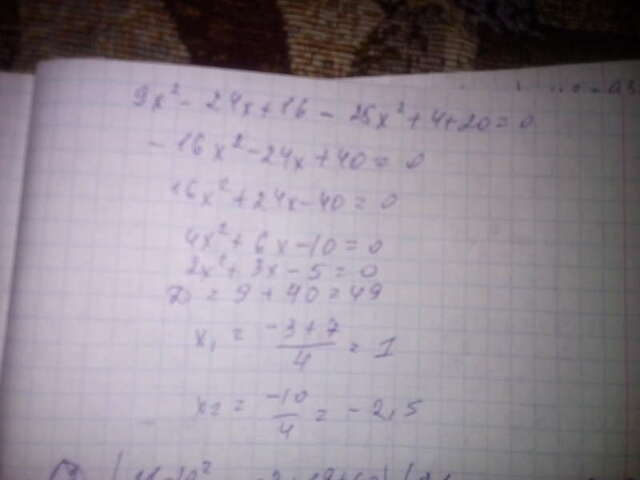 9x² - 24x + 16 - 25x² + 4 + 20 = 0
- 16x² - 24x + 40 = 0
16x² + 24x - 40 = 0
4x² + 6x - 10 = 0
2x² + 3x - 5 = 0
D = 9 + 40 = 49
x₁ = (-3 + 7)/4 = 1
x₂ = -10/4 = -2,5